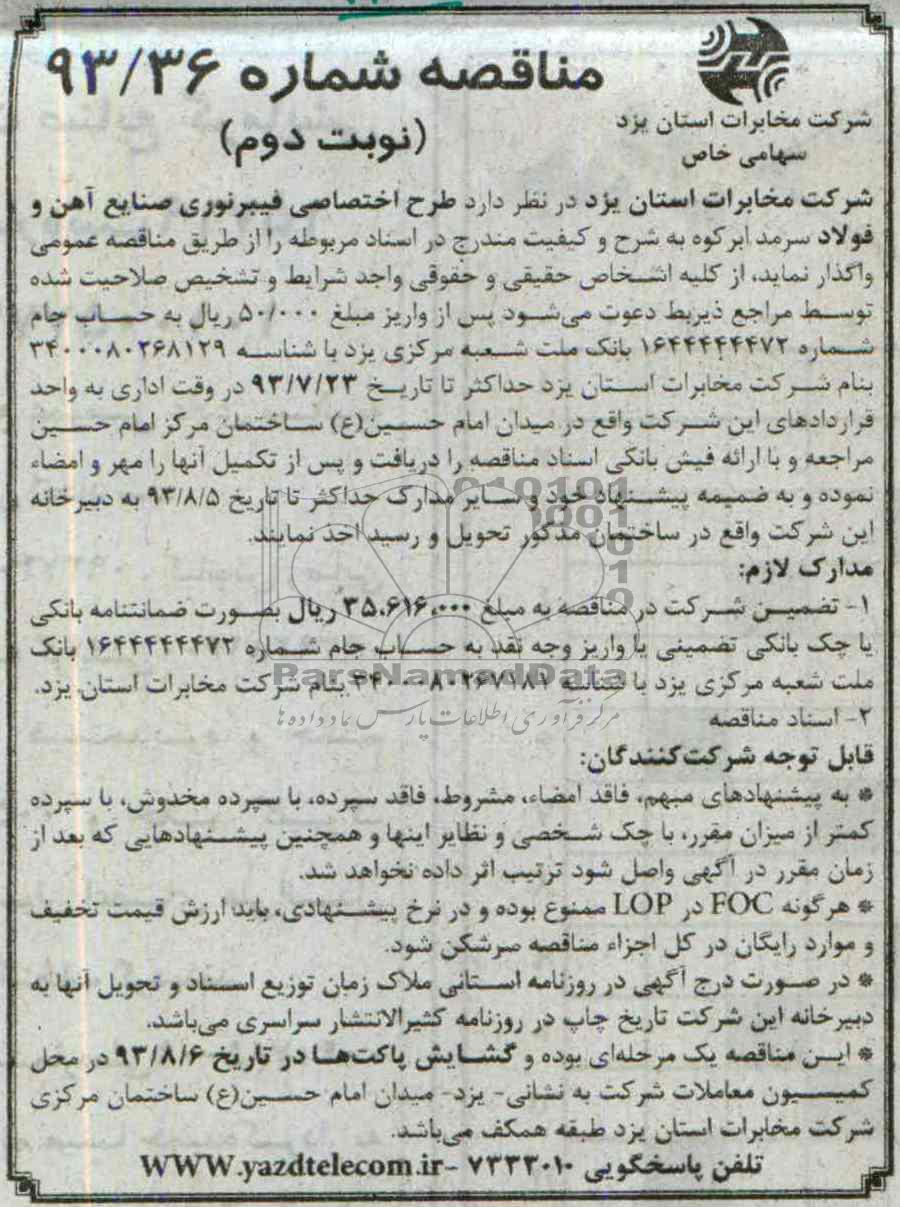 مناقصه شماره ۹۳/۳۶
(نوبت دوم)
شرکت مخابرات استان یزد
سهامی خاص
شرکت مخابرات استان یزد در نظر دارد طرح اختصاصی فیبرنوری صنایع آهن و
فولاد سرمد ابرکوه به شرح و کیفیت مندرج در اسناد مربوطه را از طریق مناقصه عمومی
واگذار نماید، از کلیه اشخاص حقیقی و حقوقی واجد شرایط و تشخیص صلاحیت شده
توسط مراجع ذیربط دعوت می‌شود پس از واریز مبلغ ۵۰/۰۰۰ ریال به حساب جام
شماره ۱۶۴۴۴۴۴۴۷۲ بانک ملت شعبه مرکزی یزد با شناسه ۳۴۰۰۰۸۰۲۶۸۱۲۹
بنام شرکت مخابرات استان یزد حداکثر تا تاریخ ۹۳/۷/۲۳ در وقت اداری به واحد
قراردادهای این شرکت واقع در میدان امام حسین(ع) ساختمان مرکز امام حسین
مراجعه و با ارائه فیش بانکی اسناد مناقصه را دریافت و پس از تکمیل آنها را مهر و امضاء
نموده و به ضمیمه پیشنهاد خود و سایر مدارک حداکثر تا تاریخ ۹۳/۸/۵ به دبیرخانه
این شرکت واقع در ساختمان مذکور تحویل و رسید اخذ نمایند.
مدارک لازم:
۱- تضمین شرکت در مناقصه به مبلغ ۳۵،۶۱۶،۰۰۰ ریال بصورت ضمانتنامه بانکی
یا چک بانکی تضمینی یا واریز وجه نقد به حساب جام شماره ۱۶۴۴۴۴۴۴۷۲ بانک
ملت شعبه مرکزی یزد با شناسه ۳۴۰۰۰۸۰۲۶۷۱۸۱ بنام شرکت مخابرات استان یزد.
ParsNamadData
مرکز فرآوری اطلاعات پارس نماد داده ها
۲- اسناد مناقصه
قابل توجه شرکت‌کنندگان:
* به پیشنهادهای مبهم، فاقد امضاء، مشروط، فاقد سپرده، با سپرده مخدوش، با سپرده
کمتر از میزان مقرر، با چک شخصی و نظایر اینها و همچنین پیشنهادهایی که بعد از
زمان مقرر در آگهی واصل شود ترتیب اثر داده نخواهد شد.
* هرگونه FOC در LOP ممنوع بوده و در نرخ پیشنهادی، باید ارزش قیمت تخفیف
و موارد رایگان در کل اجزاء مناقصه سرشکن شود.
* در صورت درج آگهی در روزنامه استانی ملاک زمان توزیع اسناد و تحویل آنها به
دبیرخانه این شرکت تاریخ چاپ در روزنامه کثیرالانتشار سراسری می‌باشد.
* این مناقصه یک مرحله‌ای بوده و گشایش پاکت‌ها در تاریخ ۹۳/۸/۶ در محل
کمیسیون معاملات شرکت به نشانی- یزد- میدان امام حسین(ع) ساختمان مرکزی
شرکت مخابرات استان یزد طبقه همکف می‌باشد.
تلفن پاسخگویی ۷۲۳۳۰۱۰- WWW.yazdtelecom.ir